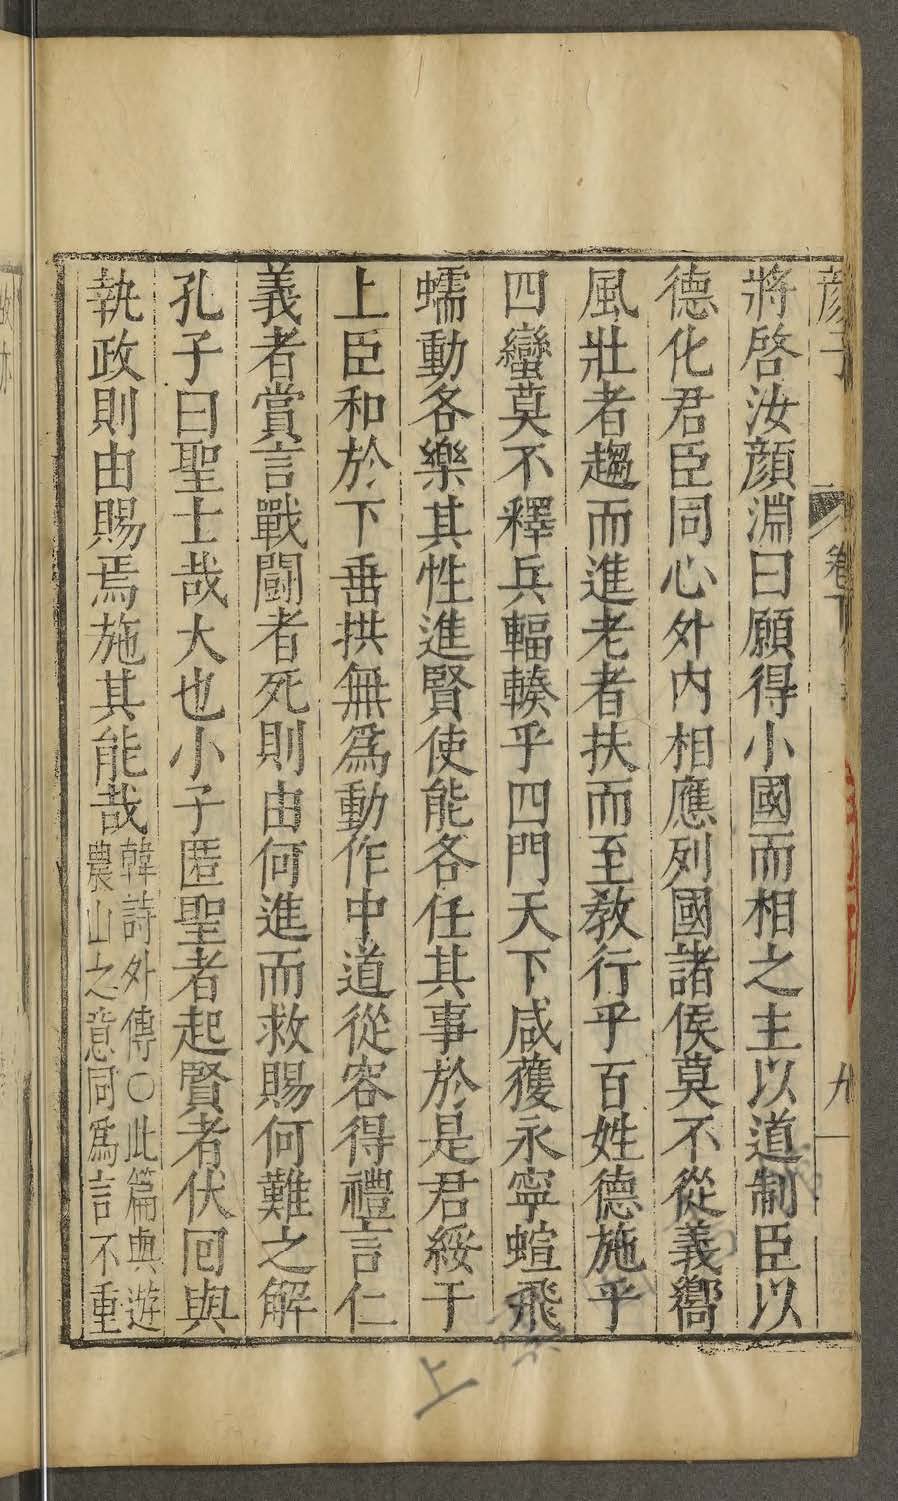 顔子 卷下 九
將啓汝顔淵曰願得小國而相之主以道制臣以
德化君臣同心外內相應列國諸侯莫不從義嚮
風壯者趨而進老者扶而至敎行乎百姓德施乎
四蠻莫不釋兵輻輳乎四門天下咸獲永寧蝖飛
蠕動各樂其性進賢使能各任其事於是君綏于
上臣和於下垂拱無爲動作中道從容得禮言仁
義者賞言戰鬪者死則由何進而救賜何難之解
孔子曰聖士哉大也小子匿聖者起賢者伏囘與
執政則由賜焉施其能哉
韓詩外傳〇此篇與遊
農山之意同爲言不重
上